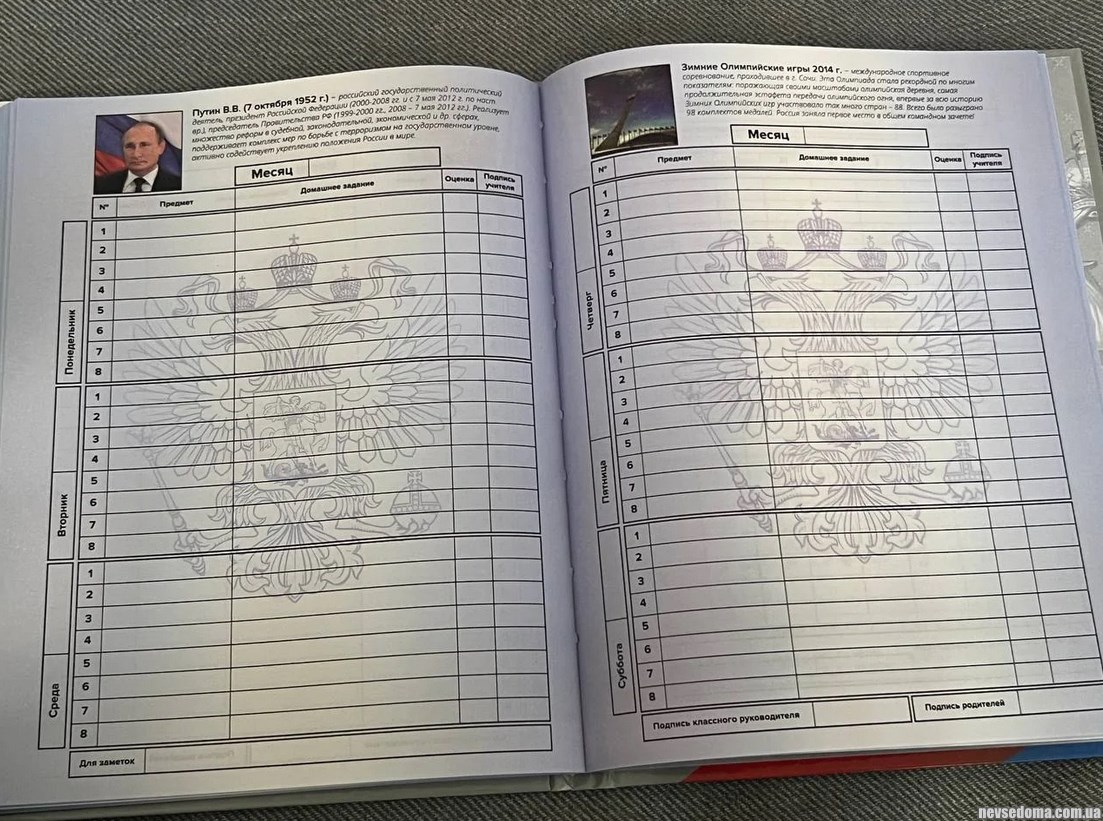 Путин В.В. (7 октября 1952 г.) – российский государственный политический
деятель, президент Российской Федерации (2000-2008 гг. и с 7 мая 2012 г. по наст.
вр.), председатель Правительства РФ (1999-2000 гг., 2008 – 7 мая 2012 гг.). Реализует
множество реформ в судебной, законодательной, экономической и др. сферах,
поддерживает комплекс мер по борьбе с терроризмом на государственном уровне,
активно содействует укреплению положения России в мире.
Месяц
№ Предмет Домашнее задание Оценка Подпись учителя
Понедельник
1
2
3
4
5
6
7
8
Вторник
1
2
3
4
5
6
7
8
Среда
1
2
3
4
5
6
7
8
Для заметок
Зимние Олимпийские игры 2014 г. – международное спортивное
соревнование, проходившее в г. Сочи. Эта Олимпиада стала рекордной по многим
показателям: поражающая своими масштабами олимпийская деревня, самая
продолжительная эстафета передачи олимпийского огня, впервые за всю историю
Зимних Олимпийских игр участвовало так много стран – 88. Всего было разыграно
98 комплектов медалей. Россия заняла первое место в общем командном зачете!
Месяц
№ Предмет Домашнее задание Оценка Подпись учителя
Четверг
1
2
3
4
5
6
7
8
Пятница
1
2
3
4
5
6
7
8
Суббота
1
2
3
4
5
6
7
8
Подпись классного руководителя
Подпись родителей
nevsedoma.com.ua